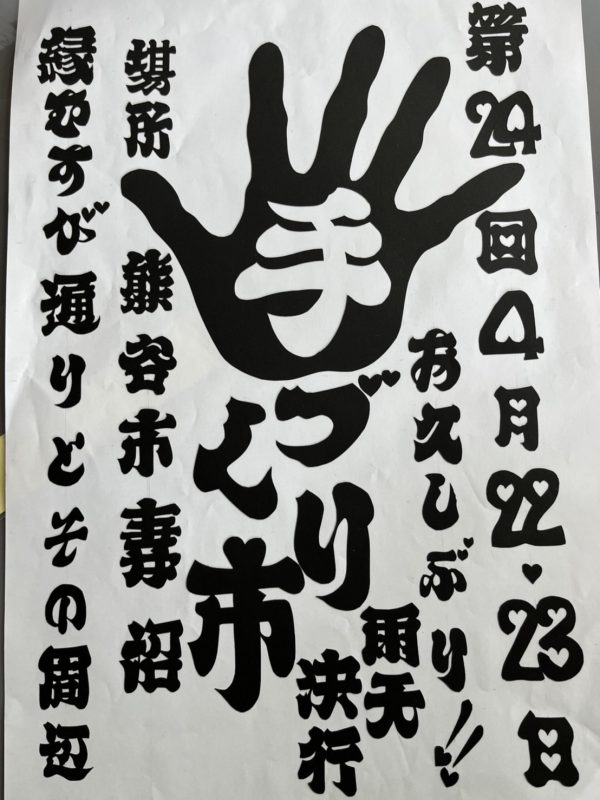 第24回4月22・23日
お久しぶり!!
雨天
決行
手づくり市
場所 熊谷市妻沼
縁むすび通りとその周辺